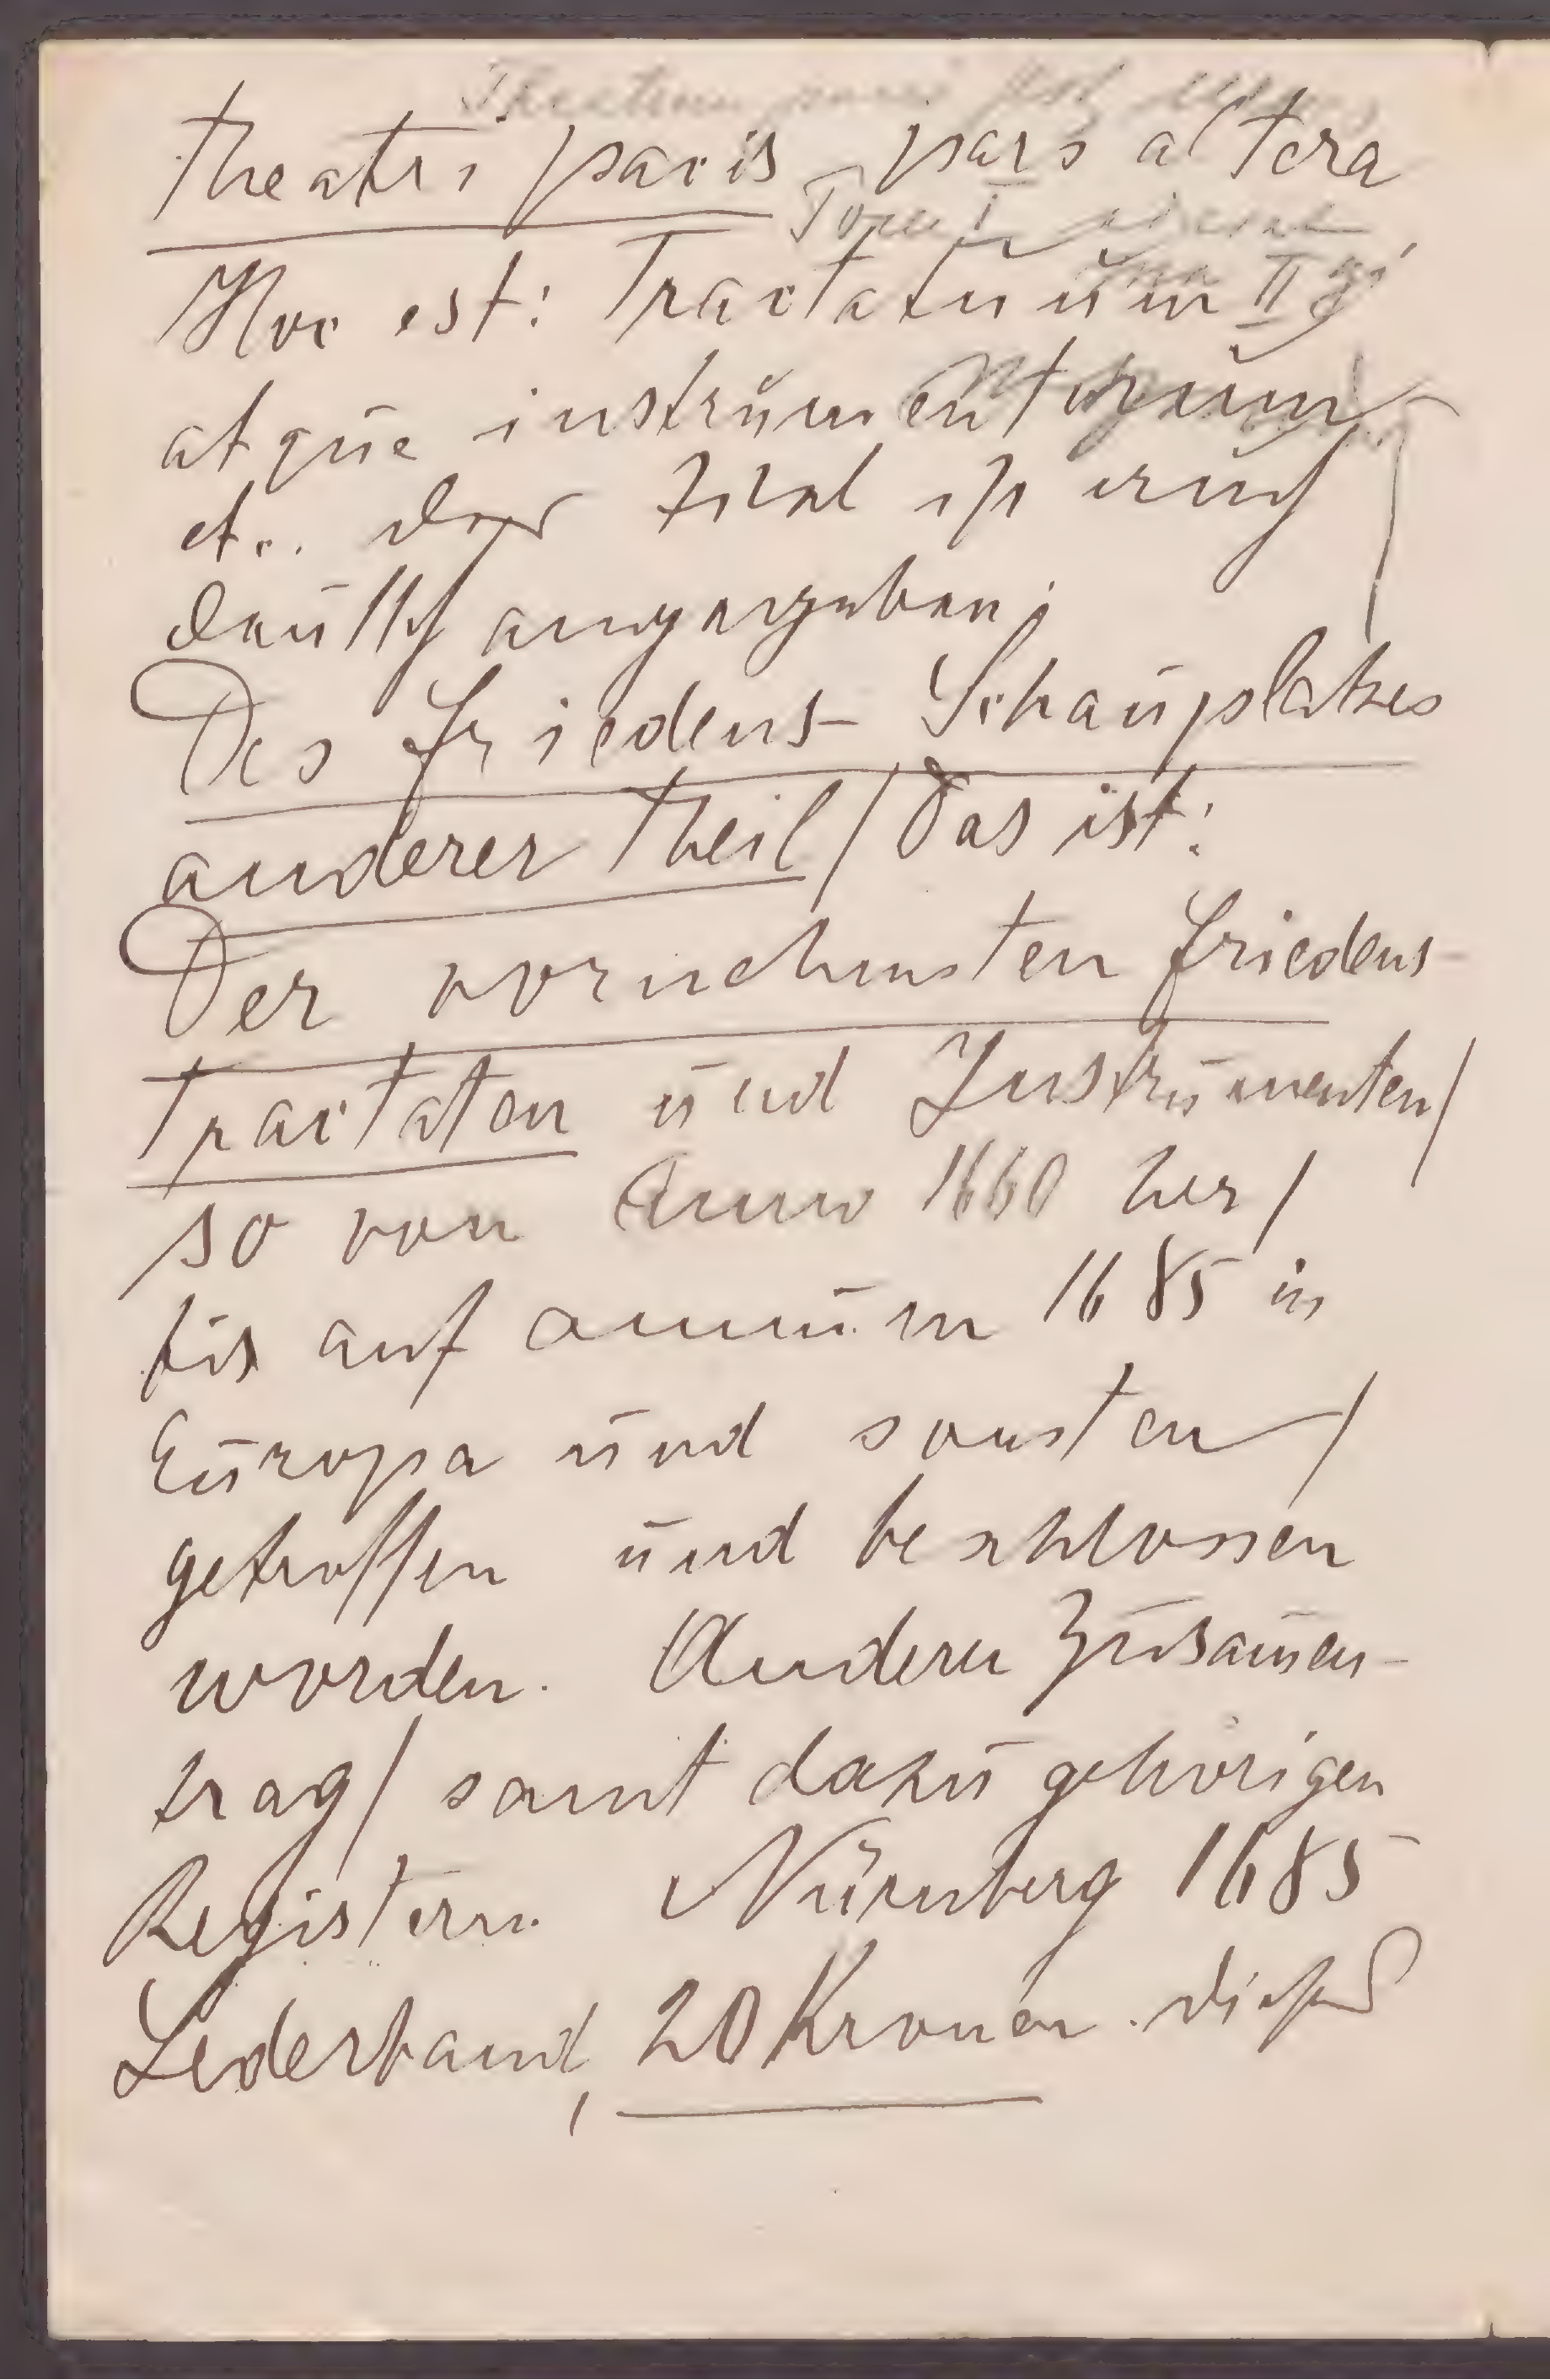 Theatri pacis pars altera
Hoc est: Tractatuum
atque instrumentorum
etc. der Titel ist auch
deutsch angegeben;
Des Friedens-Schauplatzes
anderer Theil / Das ist:
Der vornehmsten Friedens-
Tractaten und Instrumenten /
so von Anno 1660 her /
bis auf annum 1685 in
Europa und sonsten /
getroffen und beschlossen
worden. Anderer Zusam̅en-
trag / samt dazu gehörigen
Registern. Nürnberg 1685
Lederband, 20 Kronen. dieses